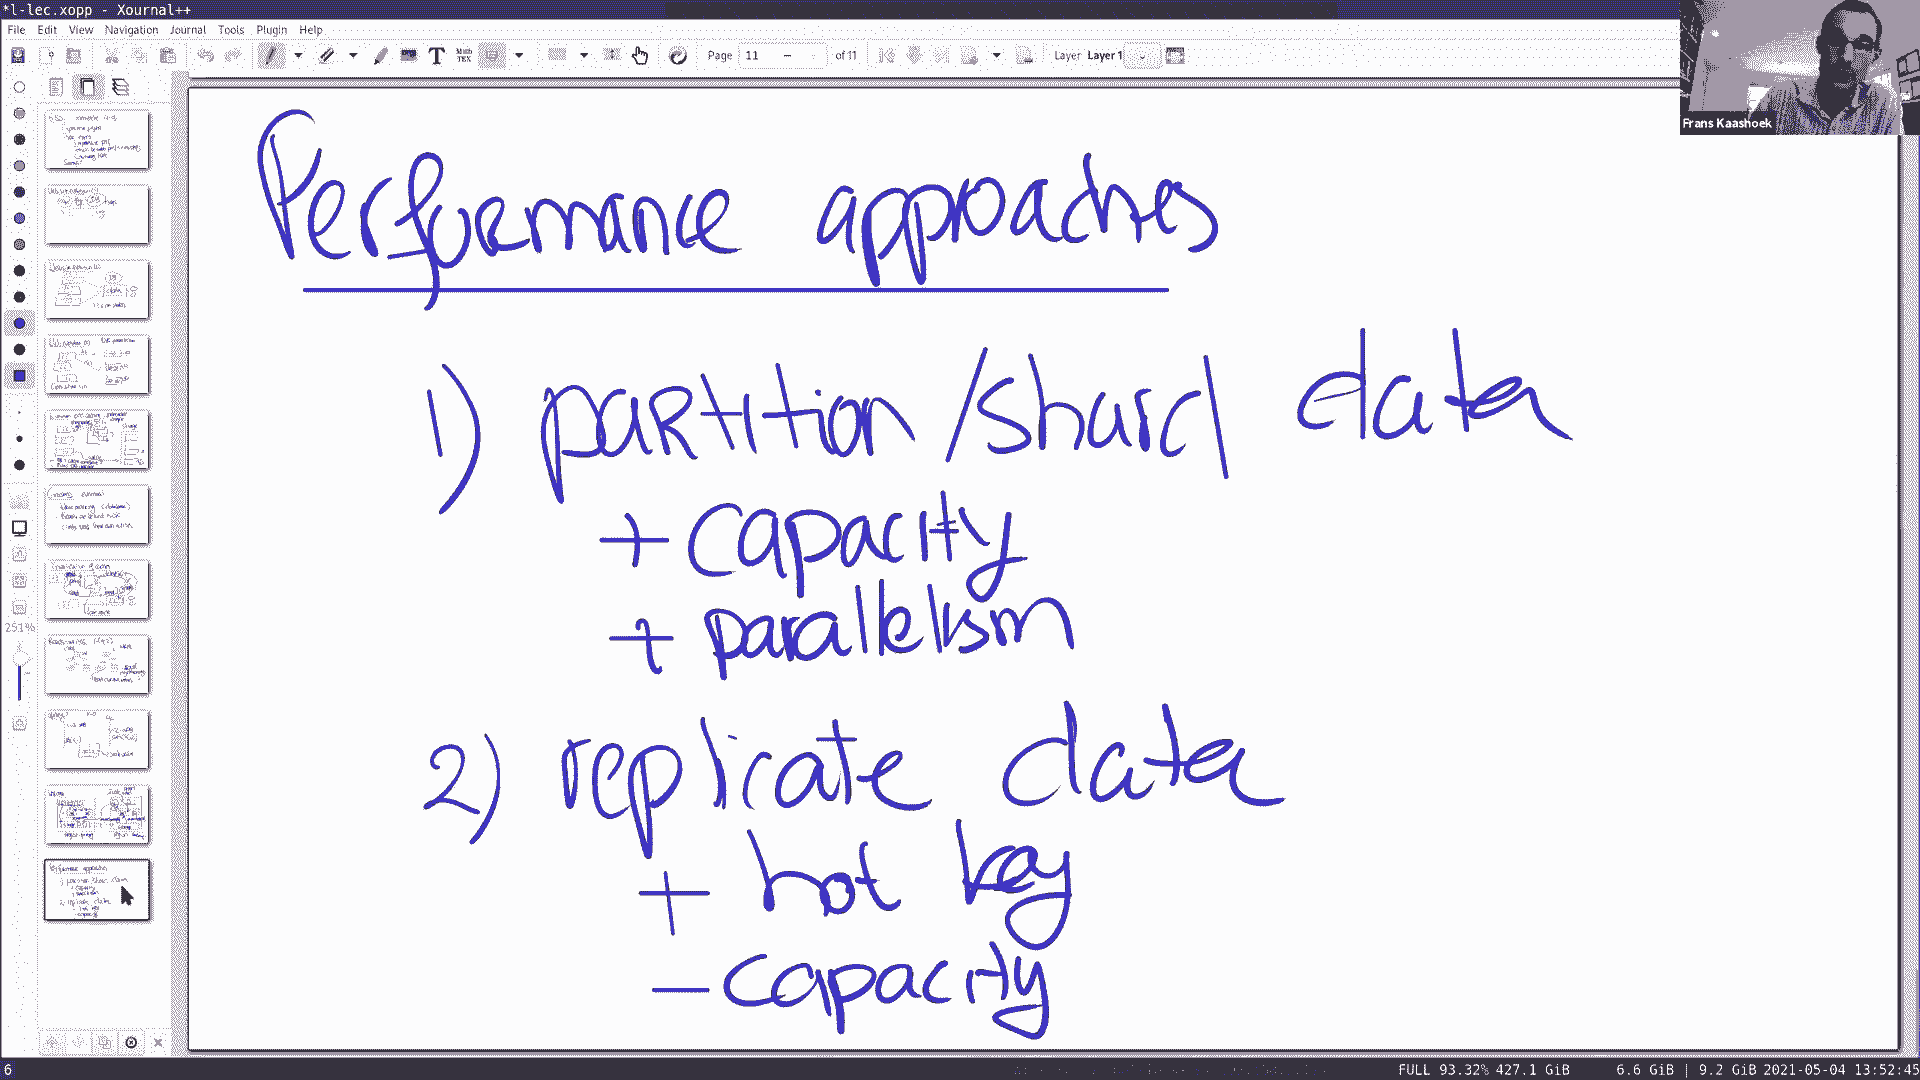 *l-lec.xopp - Xournal++
File Edit View Navigation Journal Tools Plugin Help
Page 11 of 11 Layer Layer 1
Frans Kaashoek
Performance approaches
1) partition /shard data
+ capacity
+ parallelism
2) replicate data
+ hot key
- capacity
251%
6 FULL 93.32% 427.1 GiB 6.6 GiB | 9.2 GiB 2021-05-04 13:52:45